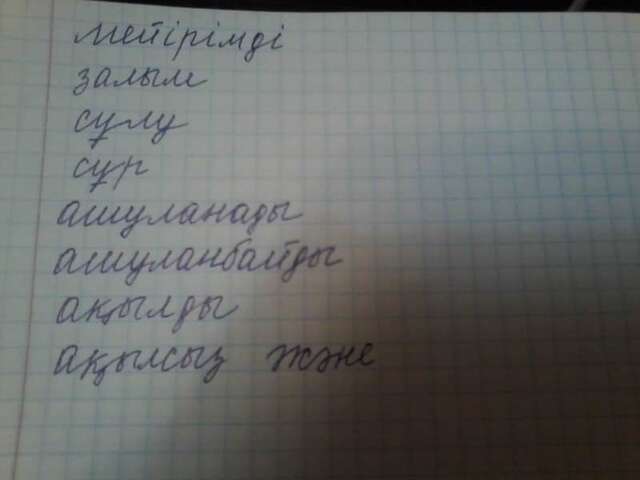 мейірімді
залым
сұлу
сұр
ашуланады
ашуланбайды
ақылды
ақылсыз және